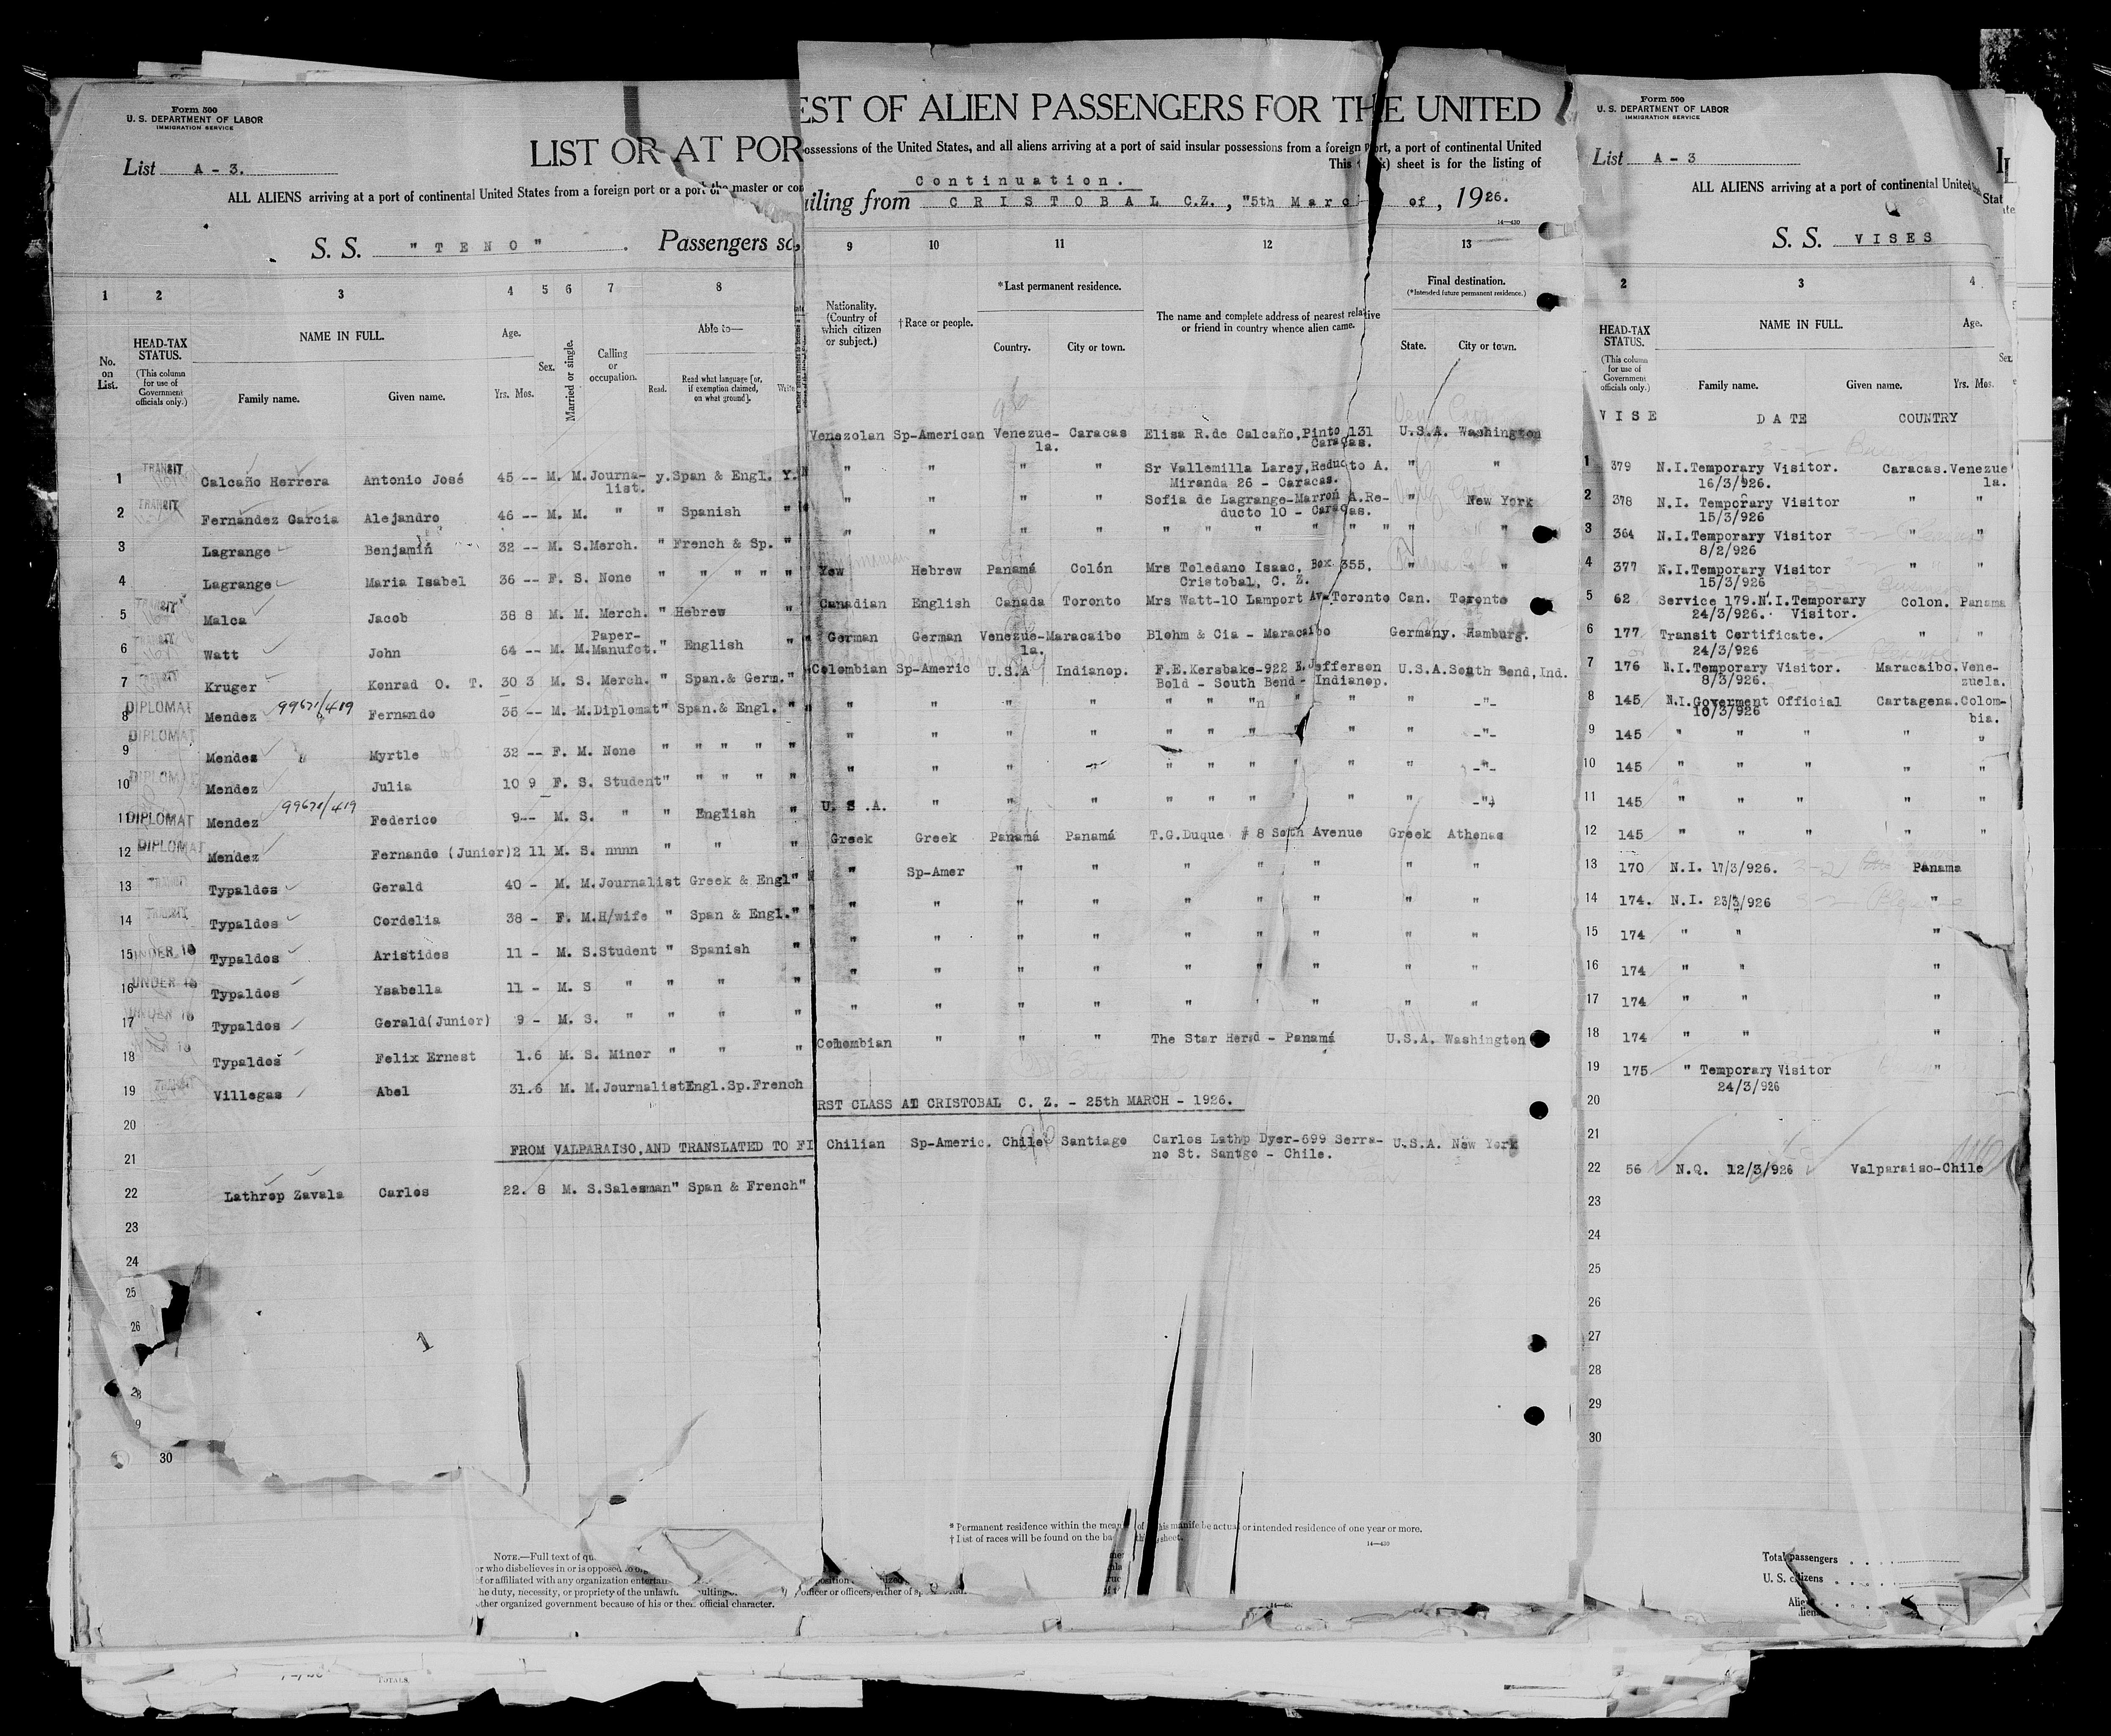 Form 500
U. S. DEPARTMENT OF LABOR
IMMIGRATION SERVICE
List A - 3.
LIST OR AT POR
ALL ALIENS arriving at a port of continental United States from a foreign port or a port the master or com
S. S. " T E N O " . Passengers sa
1 2 3 4 5 6 7 8
No. on List.
HEAD-TAX STATUS.
(This column for use of Government officials only.)
NAME IN FULL.
Family name. Given name.
Age.
Yrs. Mos.
Sex.
Married or single.
Calling or occupation.
Able to—
Read. Read what language [or, if exemption claimed, on what ground]. Write.
1 TRANSIT Calcaño Herrera Antonio José 45 -- M. M. Journa- y. Span & Engl. Y.
list.
2 TRANSIT Fernandez Garcia Alejandro 46 -- M. M. " " Spanish "
3 Lagrange Benjamiń 32 -- M. S. Merch. " French & Sp. "
4 Lagrange Maria Isabel 36 -- F. S. None " " " " "
5 TRANSIT Malca Jacob 38 8 M. M. Merch. " Hebrew "
Paper-
6 TRANSIT Watt John 64 -- M. M. Manufct. " English "
7 Kruger Konrad O. T. 30 3 M. S. Merch. " Span.& Germ. "
8 DIPLOMAT Mendez 99671/419 Fernando 35 -- M. M. Diplomat " Span.& Engl. "
9 DIPLOMAT Mendez Myrtle 32 -- F. M. None " " " " "
10 DIPLOMAT Mendez Julia 10 9 F. S. Student " " " " "
11 DIPLOMAT Mendez 99671/419 Federico 9-- M. S. " " English "
12 DIPLOMAT Mendez Fernando (Junior) 2 11 M. S. nnnn " " "
13 TRANSIT Typaldos Gerald 40 - M. M. Journalist Greek & Engl "
14 TRANSIT Typaldos Cordelia 38 - F. M. H/wife " Span & Engl. "
15 UNDER 16 Typaldos Aristides 11 - M. S. Student " Spanish "
16 UNDER 16 Typaldos Ysabella 11 - M. S " " " "
17 UNDER 16 Typaldos Gerald(Junior) 9 - M. S. " " " "
18 Typaldos Felix Ernest 1.6 M. S. Minor " " "
19 TRANSIT Villegas Abel 31.6 M. M. Journalist Engl.Sp.French
20
21 FROM VALPARAISO,AND TRANSLATED TO FI
22 Lathrop Zavala Carlos 22. 8 M. S. Salesman " Span & French "
23
24
25
26
28
9
30
1
NOTE.—Full text of qu
or who disbelieves in or is opposed to
of or affiliated with any organization entertain
he duty, necessity, or propriety of the unlawf
ther organized government because of his or their official character.
officer or officers, either of sp
TOTALS
EST OF ALIEN PASSENGERS FOR THE UNITED
ossessions of the United States, and all aliens arriving at a port of said insular possessions from a foreign port, a port of continental United
This k) sheet is for the listing of
Continuation.
iling from C R I S T O B A L C.Z. , "5th Marc of , 1926.
14—430
9 10 11 12 13
Nationality. (Country of which citizen or subject.)
†Race or people.
*Last permanent residence.
Country. City or town.
The name and complete address of nearest relative or friend in country whence alien came.
Final destination.
(*Intended future permanent residence.)
State. City or town.
Venezolan Sp-American Venezue- Caracas Elisa R.de Calcaño,Pinto 131 U.S.A. Washington
la. Caracas.
" " " " Sr Vallemilla Larey,Reducto A. " "
Miranda 26 - Caracas.
" " " " Sofia de Lagrange-Marroń A.Re- " New York
ducto 10 - Caracas.
" " " " " " " " " " " "
Yew Hebrew Panamá Colón Mrs Toledano Isaac, Box 355, " "
Cristobal, C. Z.
Canadian English Canada Toronto Mrs Watt-10 Lamport Av.Toronto Can. Toronto
German German Venezue- Maracaibo Blohm & Cia - Maracaibo Germany. Hamburg.
la.
Colombian Sp-Americ U.S.A Indianop. F.E.Kersbake-922 E.Jefferson U.S.A. South Bend,Ind.
Bold - South Bend - Indianop.
" " " " " " "n " " " -"-
" " " " " " " " " -"-
" " " " " " " " " " -"-
U. S .A. " " " " " " " " -"-
Greek Greek Panamá Panamá T.G.Duque # 8 South Avenue Greek Athenas
" Sp-Amer " " " " " " "
" " " " " " " " "
" " " " " " " " "
" " " " " " " " "
" " " " " " " " "
Colombian " " " The Star Herad - Panamá U.S.A. Washington
RST CLASS AT CRISTOBAL C. Z. - 25th MARCH - 1926.
Chilian Sp-Americ. Chile Santiago Carlos Lathp Dyer-699 Serra- U.S.A. New York
no St. Santgo - Chile.
* Permanent residence within the mean of this manife be actual or intended residence of one year or more.
† List of races will be found on the ba this sheet.
14—430
Form 500
U. S. DEPARTMENT OF LABOR
IMMIGRATION SERVICE
List A - 3
ALL ALIENS arriving at a port of continental United
Stat
S. S. V I S E S
2 3 4
HEAD-TAX STATUS.
(This column for use of Government officials only.)
NAME IN FULL.
Family name. Given name.
Age.
Yrs. Mos.
Sex.
V I S E D A T E COUNTRY
1 379 N.I.Temporary Visitor. Caracas.Venezue
16/3/926. la.
2 378 N.I. Temporary Visitor " "
15/3/926
3 364 N.I.Temporary Visitor " "
8/2/926
4 377 N.I.Temporary Visitor " "
15/3/926
5 62 Service 179.N.I.Temporary Colon. Panama
24/3/926. Visitor.
6 177 Transit Certificate. " "
24/3/926
7 176 N.I.Temporary Visitor. Maracaibo.Vene-
8/3/926. zuela.
8 145 N.I.Goverment Official Cartagena.Colom-
10/3/926 bia.
9 145 " " " " "
10 145 " " " " "
11 145 " " " " "
12 145 " " " " "
13 170 N.I. 17/3/926. Panama
14 174. N.I. 23/3/926 "
15 174 " " "
16 174 " " "
17 174 " " "
18 174 " " "
19 175 " Temporary Visitor "
24/3/926
20
21
22 56 N.Q. 12/3/926 Valparaiso-Chile
23
24
25
26
27
28
29
30
Total passengers
U. S. citizens
Aliens